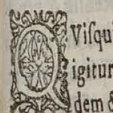 QViſqu
igitur
dem &